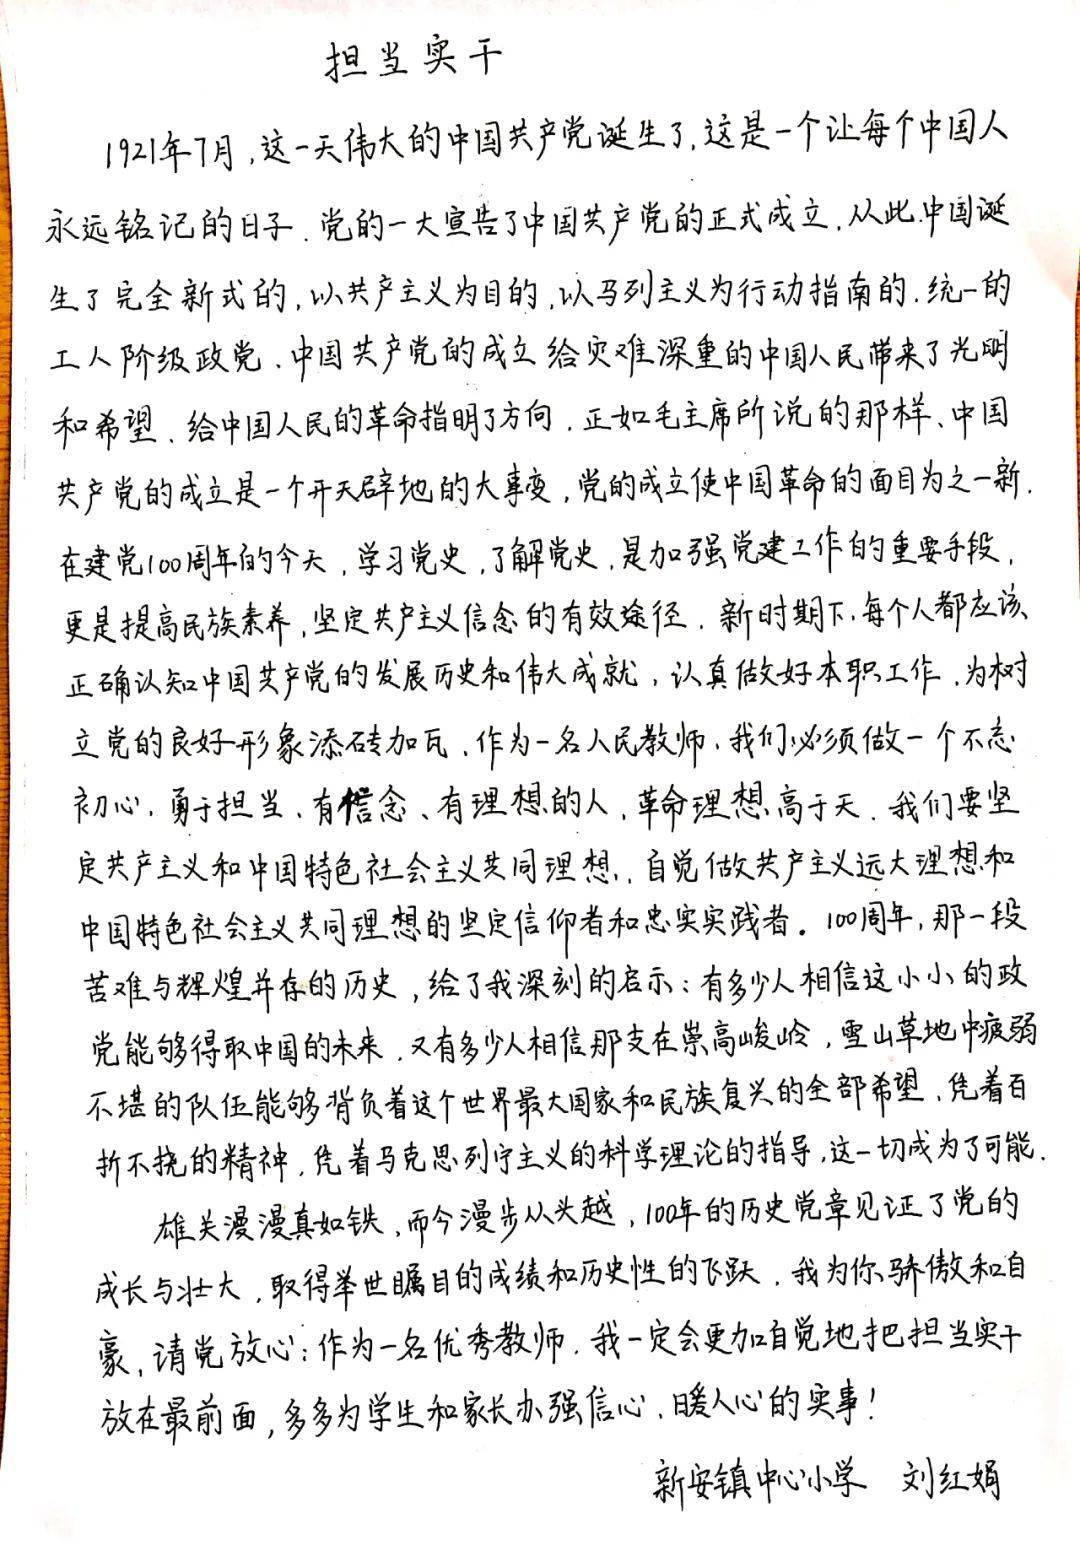 担当实干
1921年7月,这一天伟大的中国共产党诞生了,这是一个让每个中国人
永远铭记的日子.党的一大宣告了中国共产党的正式成立,从此,中国诞
生了完全新式的,以共产主义为目的,以马列主义为行动指南的.统一的
工人阶级政党、中国共产党的成立给灾难深重的中国人民带来了光明
和希望、给中国人民的革命指明了方向,正如毛主席所说的那样、中国
共产党的成立是一个开天辟地的大事变,党的成立使中国革命的面目为之一新.
在建党100周年的今天,学习党史,了解党史,是加强党建工作的重要手段,
更是提高民族素养,坚定共产主义信念的有效途径.新时期下,每个人都应该
正确认知中国共产党的发展历史和伟大成就,认真做好本职工作,为树
立党的良好形象添砖加瓦、作为一名人民教师,我们必须做一个不忘
初心,勇于担当、有信念、有理想的人,革命理想高于天.我们要坚
定共产主义和中国特色社会主义共同理想,自觉做共产主义远大理想和
中国特色社会主义共同理想的坚定信仰者和忠实实践者。100周年,那一段
苦难与辉煌并存的历史,给了我深刻的启示:有多少人相信这小小的政
党能够得取中国的未来,又有多少人相信那支在崇高峻岭,雪山草地中疲弱
不堪的队伍能够背负着这个世界最大国家和民族复兴的全部希望、凭着百
折不挠的精神,凭着马克思列宁主义的科学理论的指导,这一切成为了可能.
雄关漫漫真如铁,而今漫步从头越,100年的历史党章见证了党的
成长与壮大,取得举世瞩目的成绩和历史性的飞跃.我为你骄傲和自
豪,请党放心:作为一名优秀教师.我一定会更加自觉地把担当实干
放在最前面,多多为学生和家长办强信心、暖人心的实事!
新安镇中心小学 刘红娟